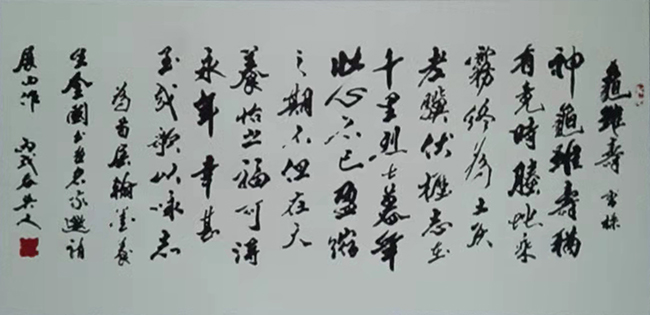 龜雖壽 曹操
神龜雖壽猶
有竟時騰蛇乘
霧終為土灰
老驥伏櫪志在
千里烈士暮年
壯心不已盈縮
之期不但在天
養怡之福可得
永年幸甚
至哉歌以咏志
為首屆翰墨養
生全國書畫名家邀請
展而作 丙戌春